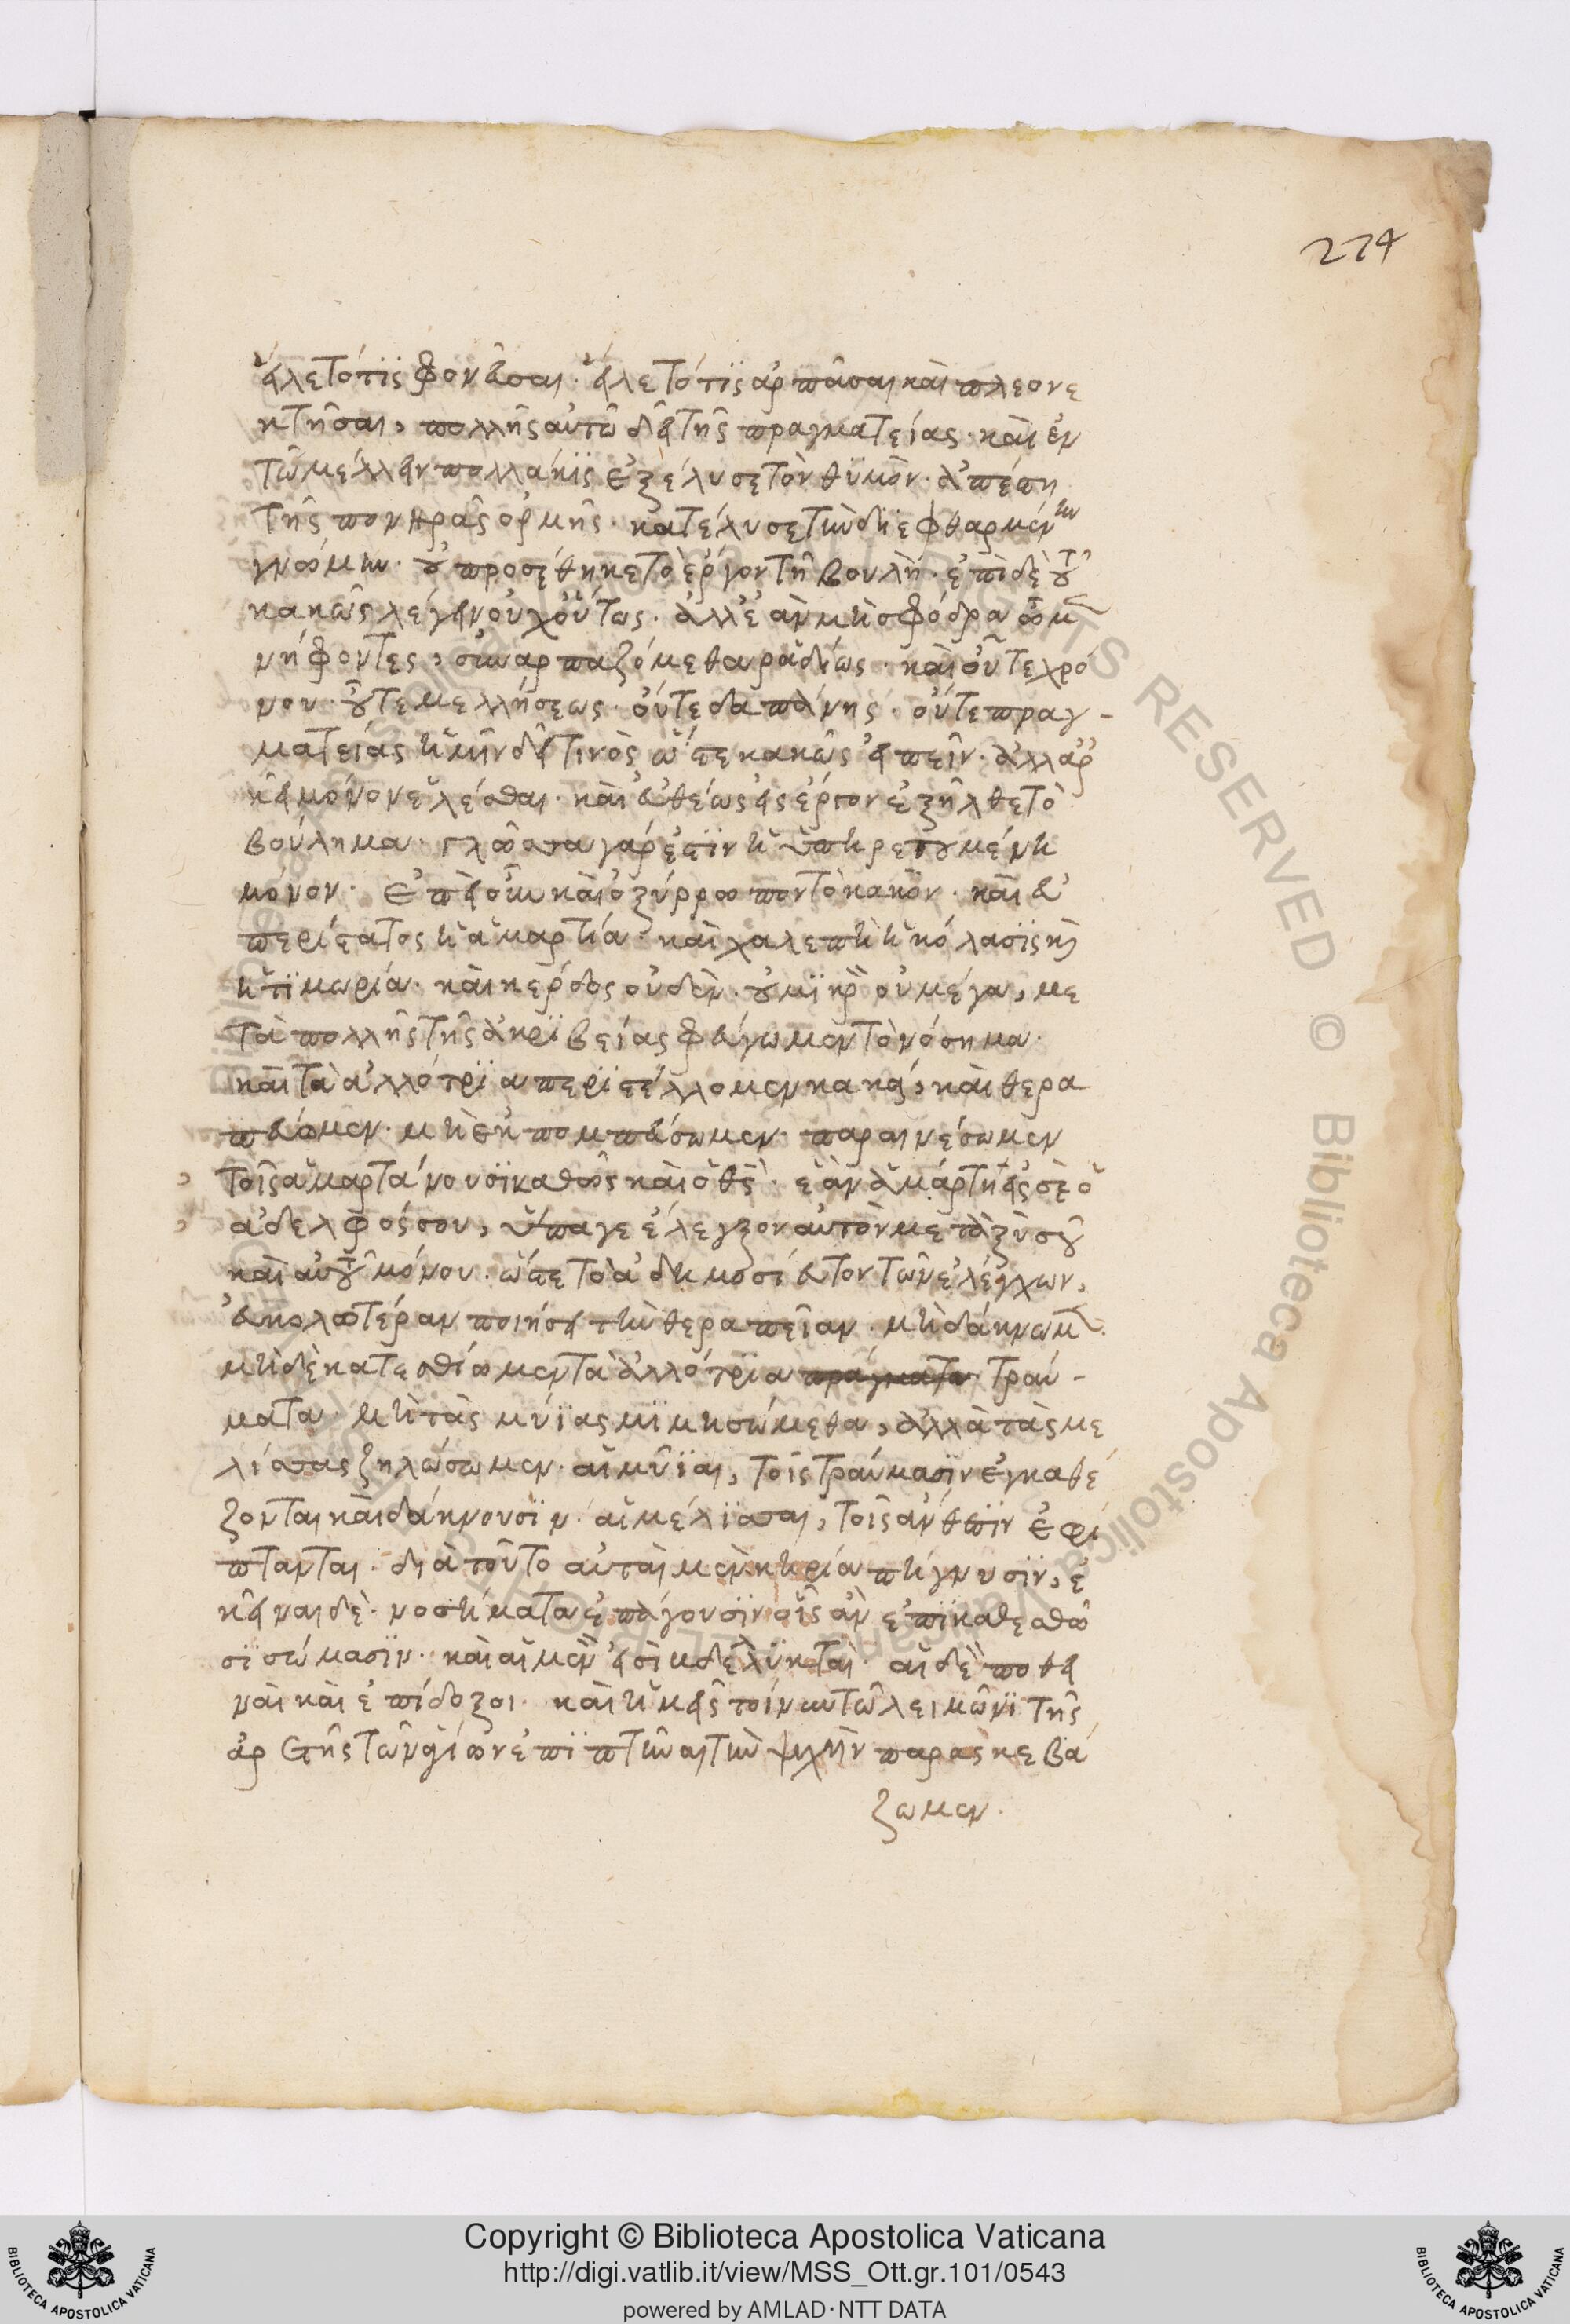 274
εἵλετό τις φονεῦσαι· εἵλετό τις ἁρπᾶσαι καὶ πλεονε
κτῆσαι, πολλῆς αὐτῶ δεῖ τῆς πραγματείας· καὶ ἐν
τῶ μέλλειν πολλάκις ἐξέλυσε τὸν θυμὸν· ἀπέστη
τῆς πονηρᾶς ὁρμῆς· κατέλυσε τὴν διεφθαρμένην
γνώμην· οὐ προσέθηκε τὸ ἔργον τῆ βουλῆ· ἐπὶ δὲ τοῦ
κακῶς λέγειν οὐχ οὕτως· ἀλλ' ἐὰν μὴ σφόδρα ὦμεν
νήφοντες, συναρπαζόμεθα ραδίως· καὶ οὔτε χρό
νου· οὔτε μελλήσεως· οὔτε δαπάνης· οὔτε πραγ-
ματείας ἡμῖν δεῖ τινὸς ὥστε κακῶς εἰπεῖν· ἀλλ' ἀρ
κεῖ μόνον ἑλέσθαι· καὶ εὐθέως εἰς ἔργον ἐξῆλθε τὸ
βούλημα· γλῶσσα γάρ ἐστιν ἡ ὑπηρετουμένη
μόνον· Ἐπεὶ οὖν καὶ ὀξύρροπον τὸ κακὸν· καὶ εὐ
περίστατος ἡ ἁμαρτία· καὶ χαλεπὴ ἡ κόλασις καὶ
ἡ τιμωρία· καὶ κέρδος οὐδὲν· οὐ μικρὸν οὐ μέγα, με
τὰ πολλῆς τῆς ἀκριβείας φεύγωμεν τὸ νόσημα·
καὶ τὰ ἀλλότρια περιστέλλομεν κακά, καὶ θερα
πεύωμεν· μὴ ἐκπομπεύσωμεν· παραινέσωμεν
τοῖς ἁμαρτάνουσι καθὼς καὶ ὁ θς· ἐὰν ἁμάρτη εἰς σὲ ὁ
ἀδελφός σου, ὕπαγε ἔλεγξον αὐτὸν μεταξὺ σοῦ
καὶ αὐτοῦ μόνου· ὥστε τὸ ἀδημοσίευτον τῶν ἐλέγχων,
εὐκολωτέραν ποιήσει τὴν θεραπείαν· μὴ δάκνωμεν
μηδὲ κατεσθίωμεν τὰ ἀλλότρια πράγματα τραύ-
ματα· μὴ τὰς μυίας μιμησώμεθα, ἀλλὰ τὰς με
λίσσας ζηλώσωμεν· αἱ μυῖαι, τοῖς τραύμασιν ἐγκαθέ
ζονται καὶ δάκνουσιν· αἱ μέλισσαι, τοῖς ἄνθεσιν ἐφί
πτανται· διὰ τοῦτο αὗται μὲν κηρία πήγνυσιν, ἐ
κεῖναι δὲ· νοσήματα ἐπάγουσιν οἷς ἂν ἐπικαθεσθῶ
σι σώμασιν· καὶ αἱ μὲν εἰσὶ βδελυκταὶ· αἱ δὲ ποθει
ναὶ καὶ ἐπίδοξοι· καὶ ἡμεῖς τοίνυν τῶ λειμῶνι τῆς
ἀρετῆς τῶν ἁγίων ἐπιπτῆναι τὴν ψυχὴν παρασκευά
ζωμεν·
Copyright © Biblioteca Apostolica Vaticana
http://digi.vatlib.it/view/MSS_Ott.gr.101/0543
powered by AMLAD·NTT DATA